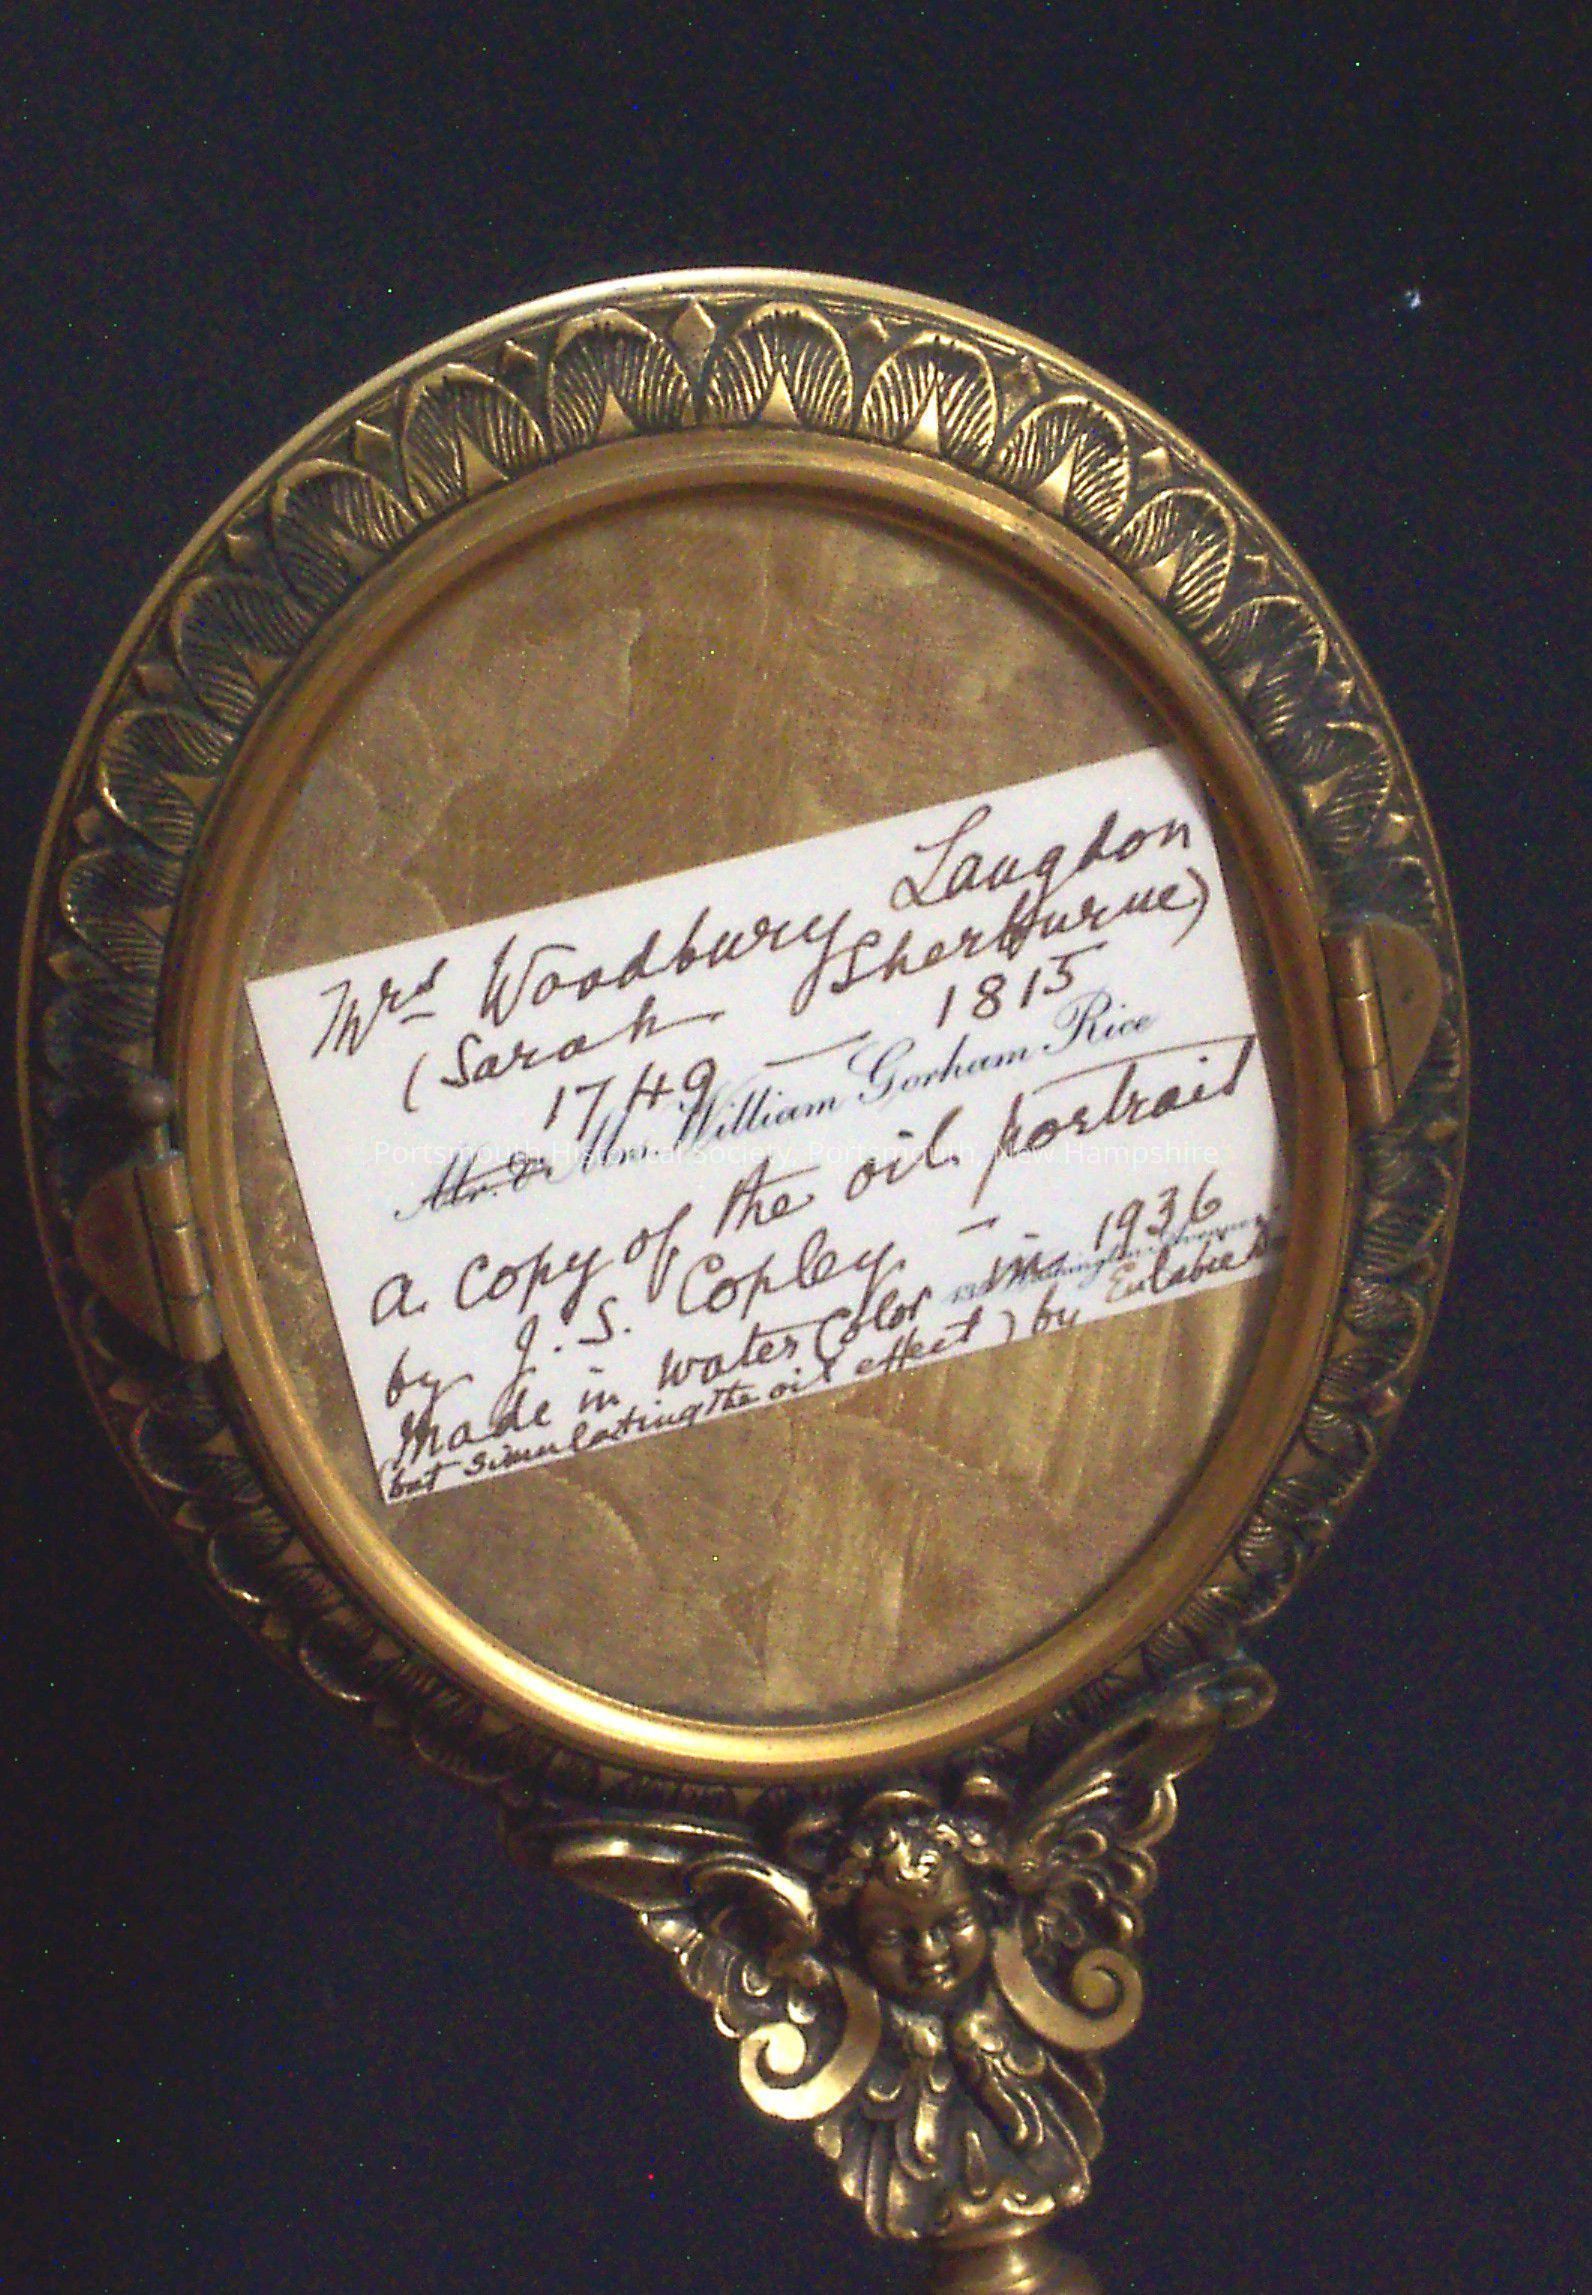 Mrs Woodbury Langdon
(Sarah Sherburne)
1749 — 1815
Mr. & Mrs. William Gorham Rice
a copy of the oil portrait
by J. S. Copley —
made in water color in 1936
(but simulating the oil effect) by Eulabie
Portsmouth Historical Society, Portsmouth, New Hampshire